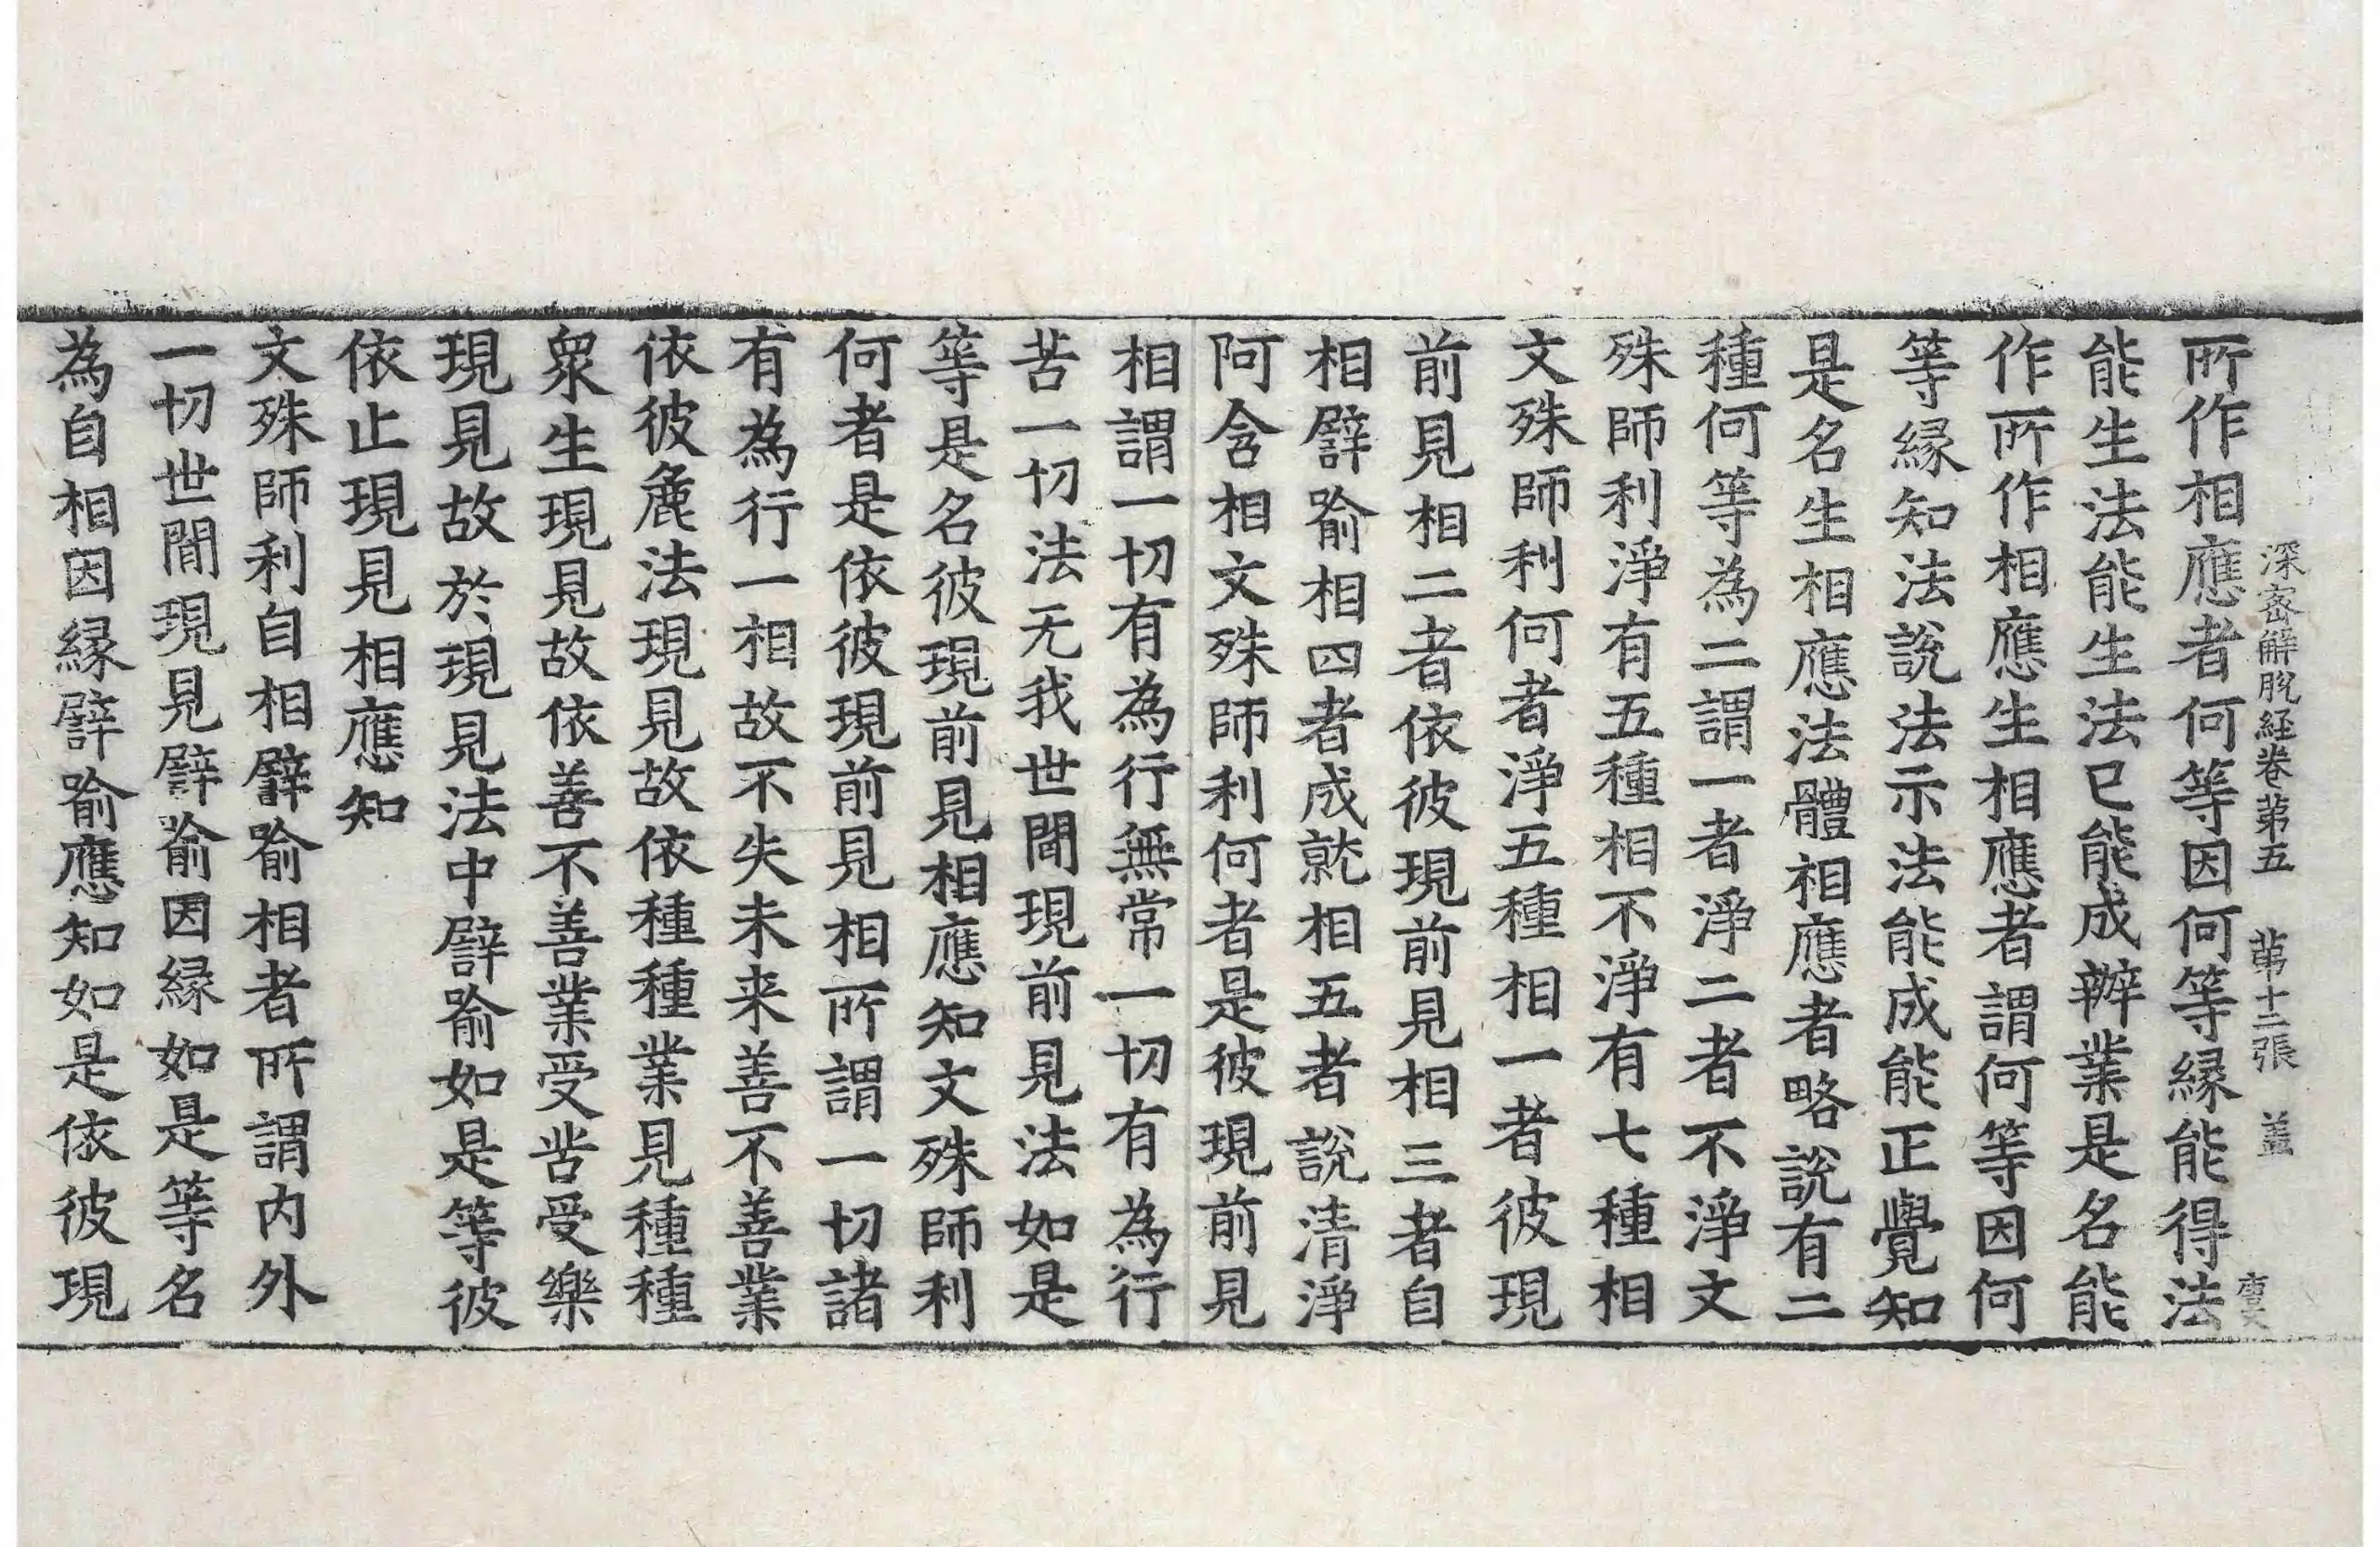 深密解脫経卷苐五 苐十二張 盖
所作相應者何等因何等縁能得法
能生法能生法已能成辦業是名能
作所作相應生相應者謂何等因何
等縁知法說法示法能成能正覺知
是名生相應法體相應者略說有二
種何等為二謂一者淨二者不淨文
殊師利淨有五種相不淨有七種相
文殊師利何者淨五種相一者彼現
前見相二者依彼現前見相三者自
相譬喻相四者成就相五者說清淨
阿含相文殊師利何者是彼現前見
相謂一切有為行無常一切有為行
苦一切法无我世間現前見法如是
等是名彼現前見相應知文殊師利
何者是依彼現前見相所謂一切諸
有為行一相故不失未来善不善業
依彼麁法現見故依種種業見種種
衆生現見故依善不善業受苦受樂
現見故於現見法中譬喻如是等彼
依止現見相應知
文殊師利自相譬喻相者所謂內外
一切世間現見譬喻因縁如是等名
為自相因縁譬喻應知如是依彼現